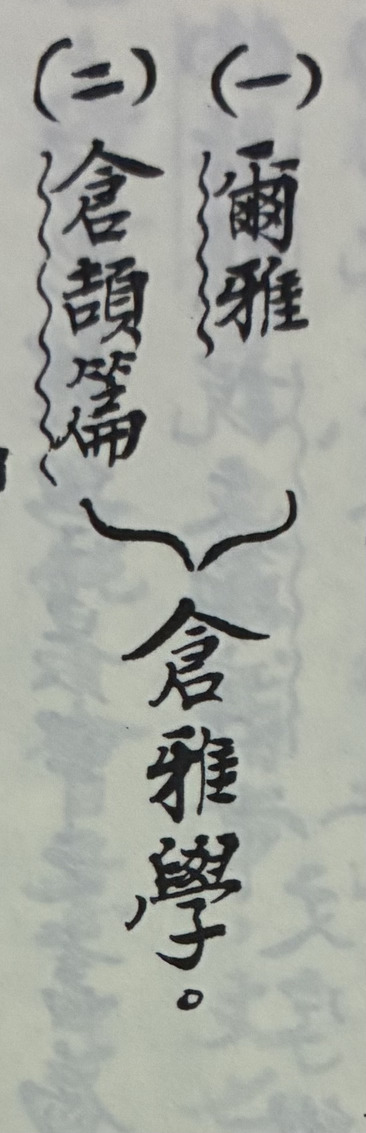 (一)爾雅
(二)倉頡篇
倉雅學。